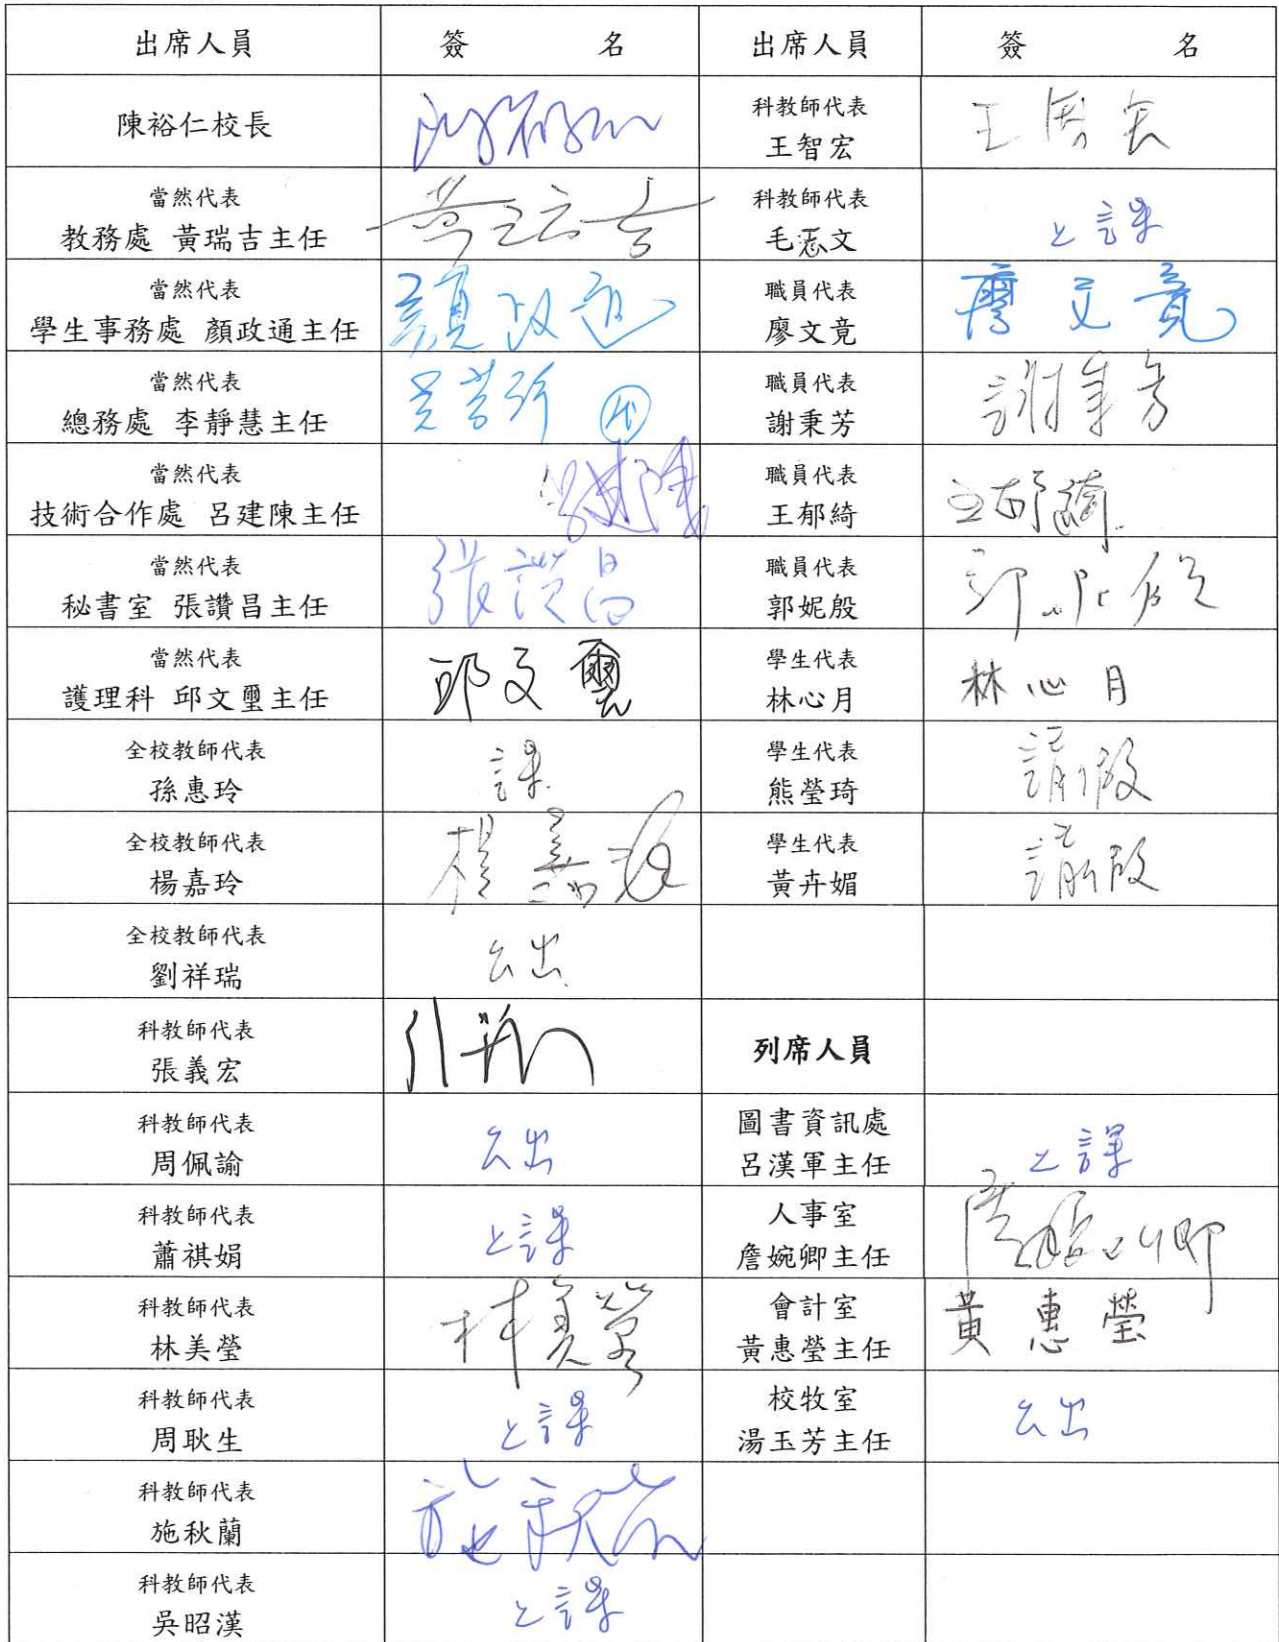 出席人員 簽 名 出席人員 簽 名
陳裕仁校長
科教師代表
王智宏 王智宏
當然代表
教務處 黃瑞吉主任 黃瑞吉
科教師代表
毛忞文 上課
當然代表
學生事務處 顏政通主任 顏政通
職員代表
廖文竟 廖文竟
當然代表
總務處 李靜慧主任 代
職員代表
謝秉芳 謝秉芳
當然代表
技術合作處 呂建陳主任 呂建陳
職員代表
王郁綺 王郁綺
當然代表
秘書室 張讚昌主任 張讚昌
職員代表
郭妮殷 郭妮殷
當然代表
護理科 邱文璽主任 邱文璽
學生代表
林心月 林心月
全校教師代表
孫惠玲 課
學生代表
熊瑩琦 請假
全校教師代表
楊嘉玲 楊嘉玲
學生代表
黃卉媚 請假
全校教師代表
劉祥瑞 公出
科教師代表
張義宏
列席人員
科教師代表
周佩諭 公出
圖書資訊處
呂漢軍主任 上課
科教師代表
蕭祺娟 上課
人事室
詹婉卿主任 詹婉卿
科教師代表
林美瑩 林美瑩
會計室
黃惠瑩主任 黃惠瑩
科教師代表
周耿生 上課
校牧室
湯玉芳主任 公出
科教師代表
施秋蘭 施秋蘭
科教師代表
吳昭漢 上課